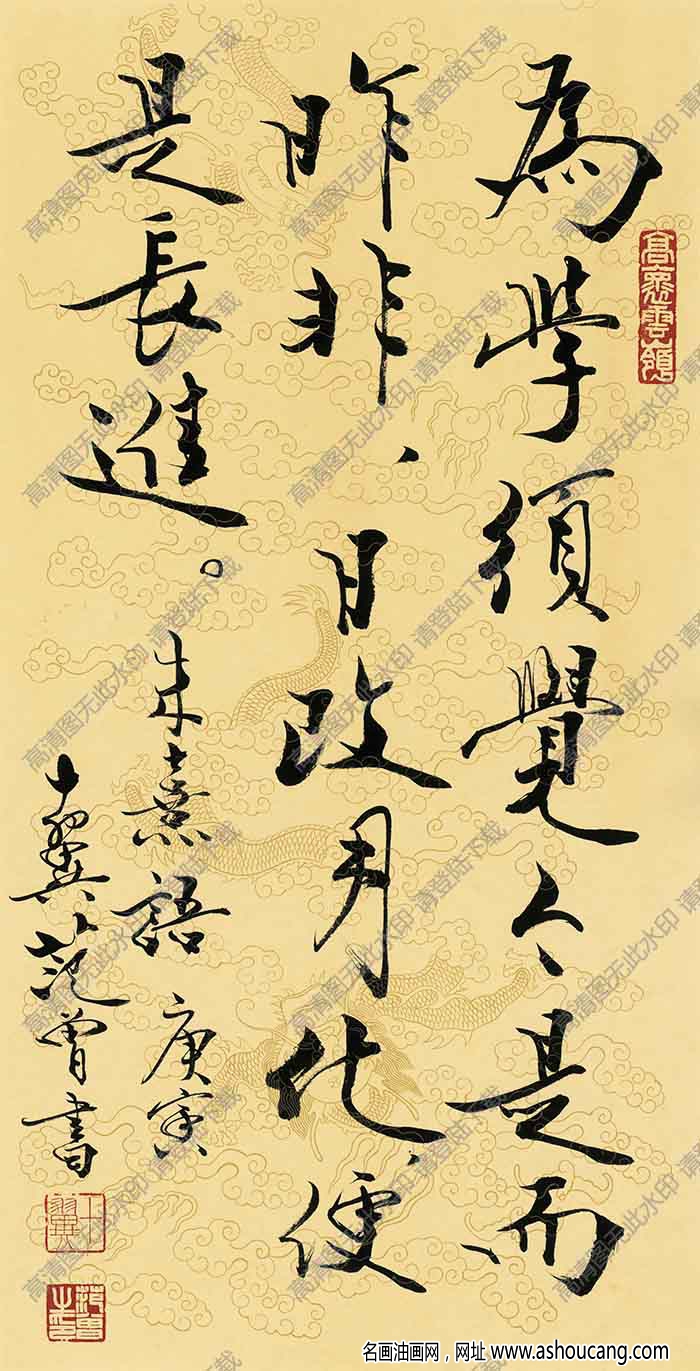 為学須覺今是而
昨非、日改月化、便
是長進。
朱熹語 庚寅
十翼范曾書
十翼
范曾之印
高清图无此水印 请登陆下载
名画油画网，网址 www.ashoucang.com